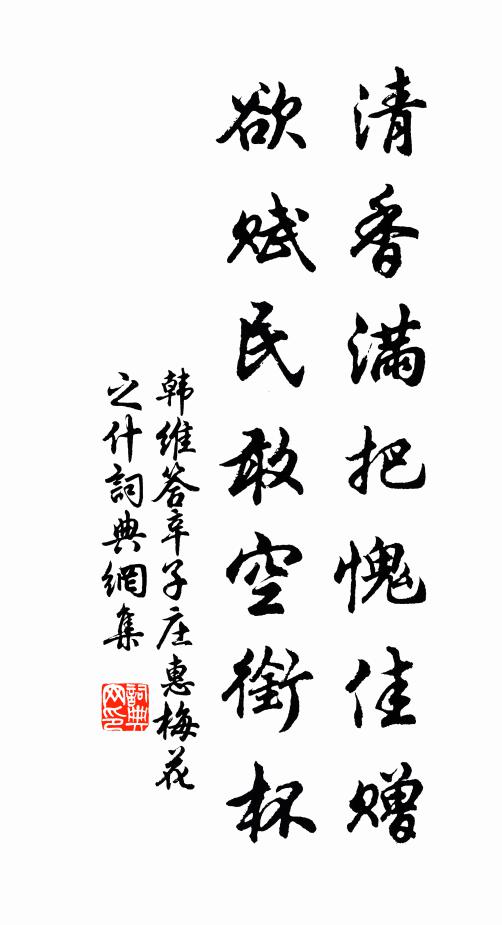 清香满把愧佳赠
欲赋民敢空銜杯
韩维答辛子庄惠梅花
之什詞典網集
詞典
网印